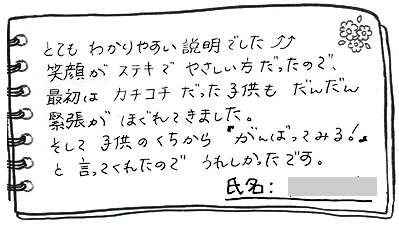 とても わかりやすい 説明でした⤴⤴
笑顔が ステキで やさしい方 だったので、
最初は カチコチ だった 子供も だんだん
緊張が ほぐれてきました。
そして 子供のくちから 『がんばってみる!』
と 言ってくれたので うれしかったです。
氏名: